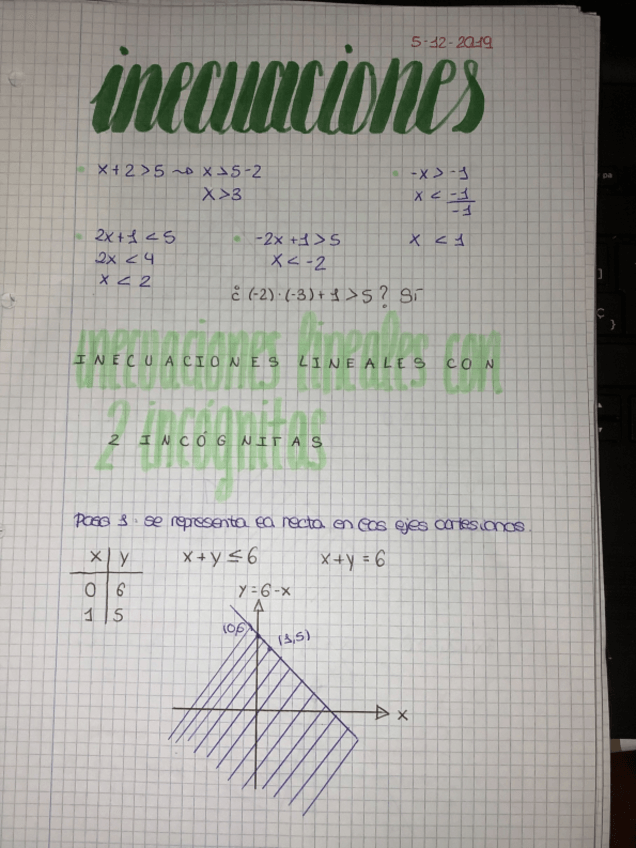 5-12-2019
inecuaciones
x+2>5 ⤳ x>5-2
x>3
-x>-1
x < -1/-1
x < 1
2x+1<5
2x<4
x<2
-2x+1>5
x<-2
¿(-2)·(-3)+1>5? Sí
inecuaciones lineales con
INECUACIONES LINEALES CON
2 incógnitas
2 INCÓGNITAS
Paso 1: se representa la recta en los ejes cartesianos.
x | y
0 | 6
1 | 5
x+y≤6
x+y=6
y=6-x
(0,6)
(1,5)
x